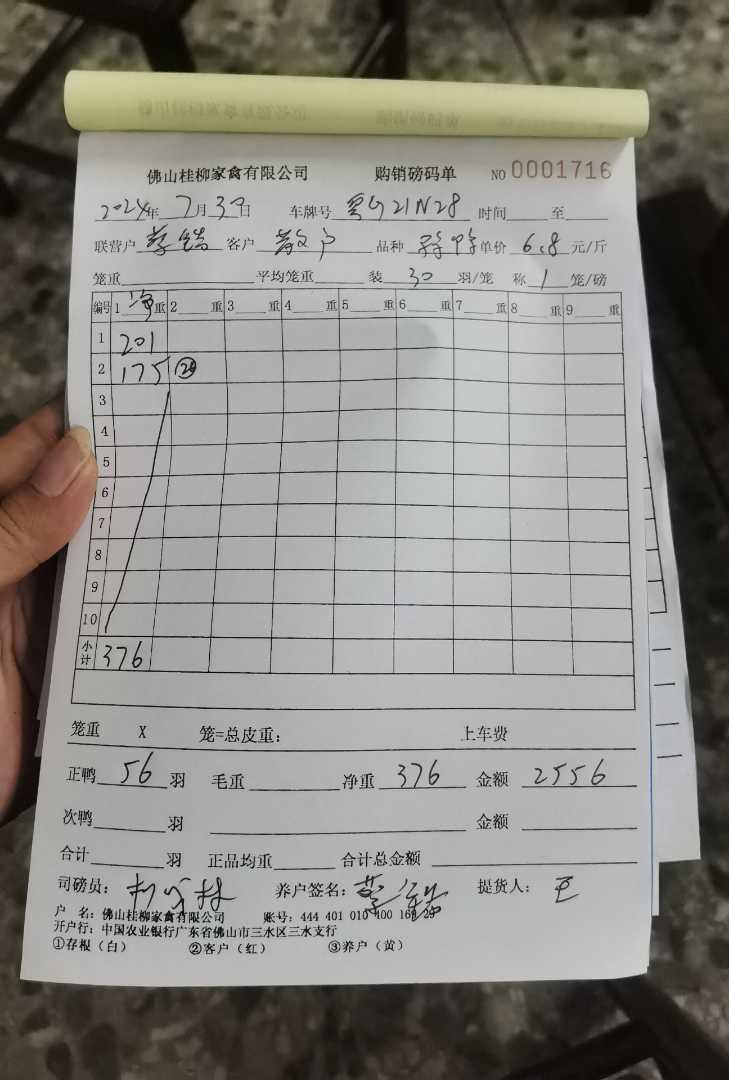 佛山桂柳家禽有限公司 购销磅码单 NO 0001716
2024年 7月 30日 车牌号 21N28 时间 至
联营户 客户 散户 品种 单价 6.8 元/斤
笼重 平均笼重 装 30 羽/笼 称 1 笼/磅
编号 1 净 重 2 重 3 重 4 重 5 重 6 重 7 重 8 重 9 重
1 201
2 175
3
4
5
6
7
8
9
10
小计 376
笼重 X 笼=总皮重： 上车费
正鸭 56 羽 毛重 净重 376 金额 2556
次鸭 羽 金额
合计 羽 正品均重 合计总金额
司磅员： 养户签名： 提货人：
户 名：佛山桂柳家禽有限公司 账号：444 401 010 400 160 29
开户行：中国农业银行广东省佛山市三水区三水支行
①存根（白） ②客户（红） ③养户（黄）